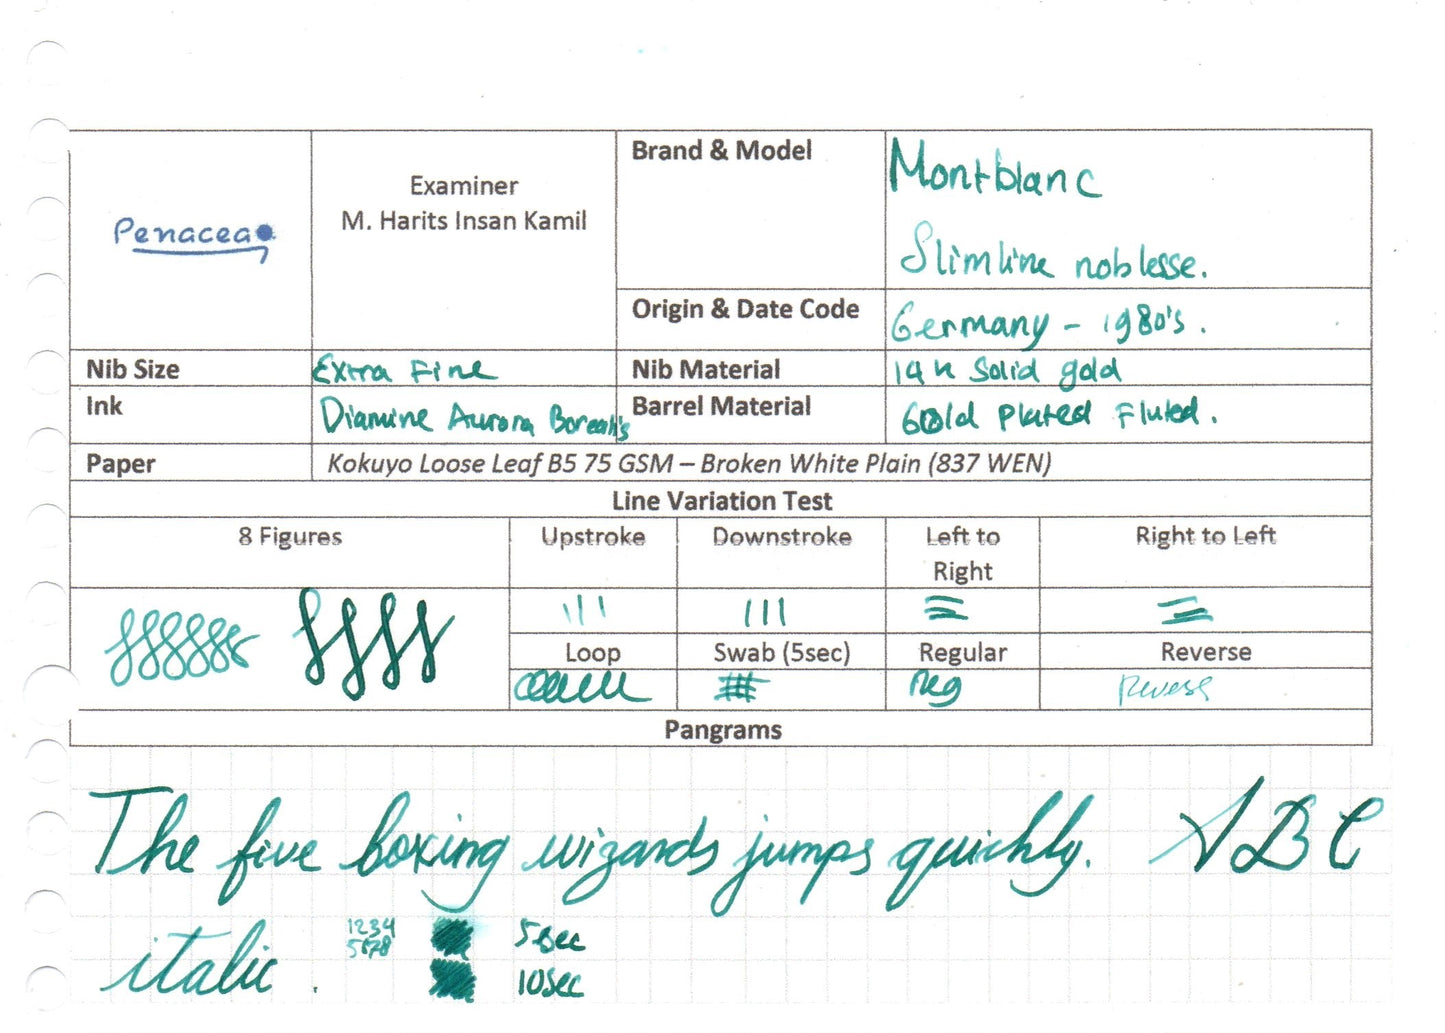 Penacea
Examiner
M. Harits Insan Kamil
Brand & Model
Montblanc
Slimline noblesse.
Origin & Date Code
Germany - 1980's.
Nib Size
Extra Fine
Nib Material
14 k Solid gold
Ink
Diamine Aurora Borealis
Barrel Material
Gold Plated Fluted.
Paper
Kokuyo Loose Leaf B5 75 GSM – Broken White Plain (837 WEN)
Line Variation Test
8 Figures
Upstroke
Downstroke
Left to
Right
Right to Left
Loop
Swab (5sec)
Regular
Reverse
Reg
Reverse
Pangrams
The five boxing wizards jumps quickly. ABC
italic.
1234
5678
5sec
10sec